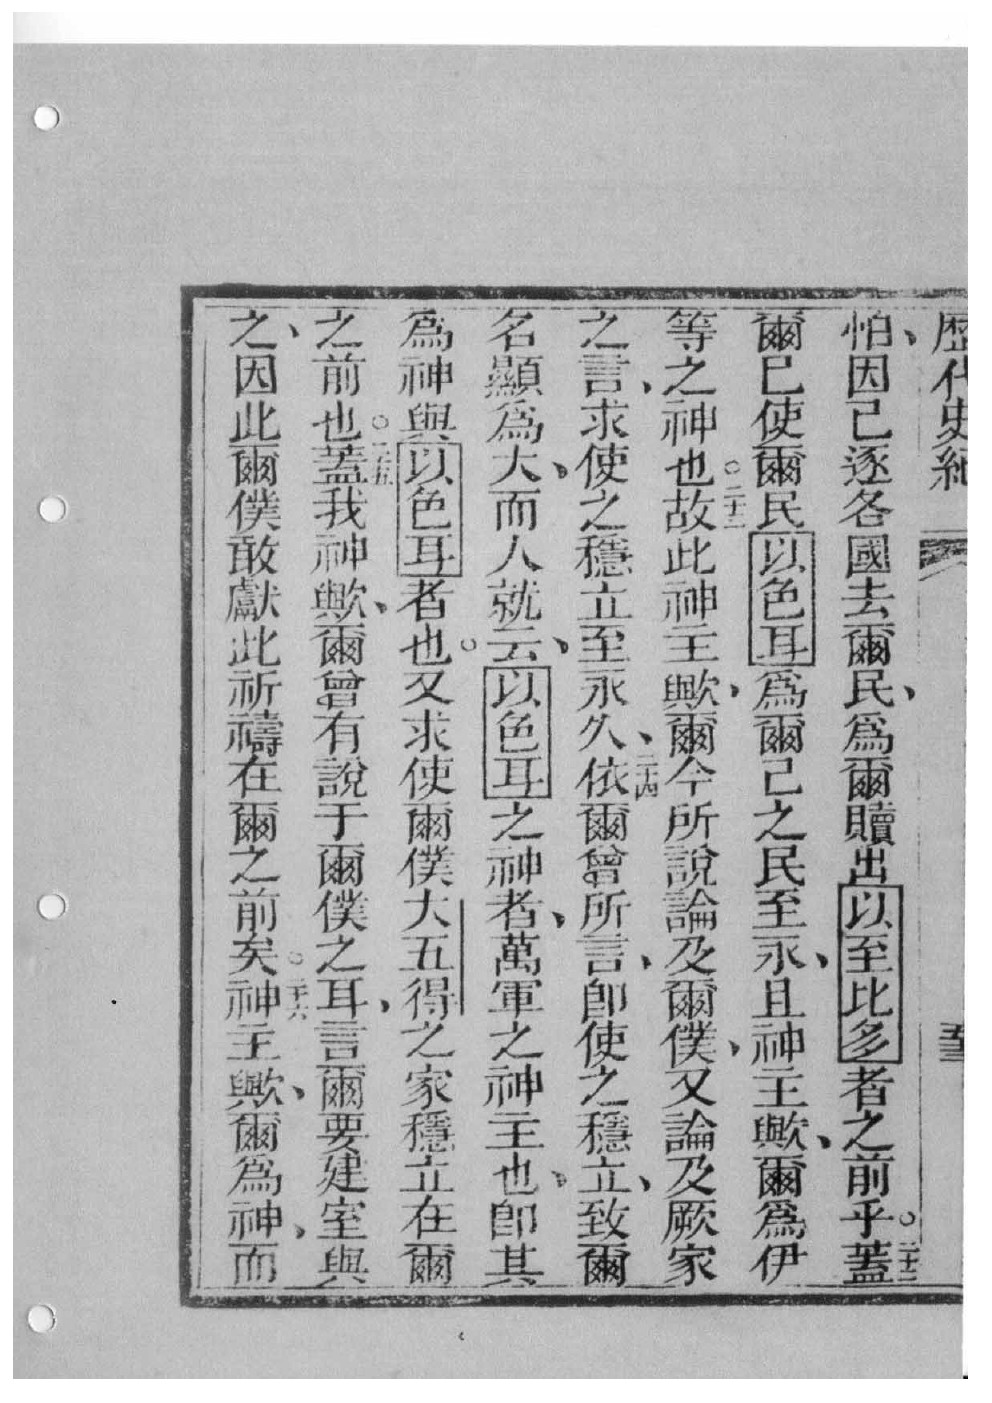 歷代史紀
怕、因已逐各國去爾民、爲爾贖出以至比多者之前乎。二十二蓋
爾已使爾民以色耳爲爾己之民至永、且神主歟、爾爲伊
等之神也。二十三故此神主歟、爾今所說論及爾僕、又論及厥家
之言、求使之穩立至永久、二十四依爾曾所言、卽使之穩立、致爾
名顯爲大、而人就云、以色耳之神者、萬軍之神主也、卽其
爲神與以色耳者也。又求使爾僕大五得之家穩立在爾
之前也。二十五蓋我神歟、爾曾有說于爾僕之耳、言爾要建室與
之、因此爾僕敢獻此祈禱在爾之前矣。二十六神主歟、爾爲神、而